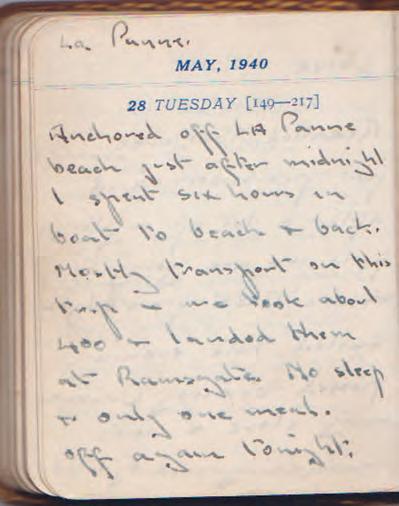 La Panne.
MAY, 1940
28 TUESDAY [149—217]
Anchored off LA Panne
beach just after midnight
I spent six hours in
boat to beach & back.
Mostly transport on this
trip & we took about
400 & landed them
at Ramsgate. No sleep
& only one meal.
off again tonight.